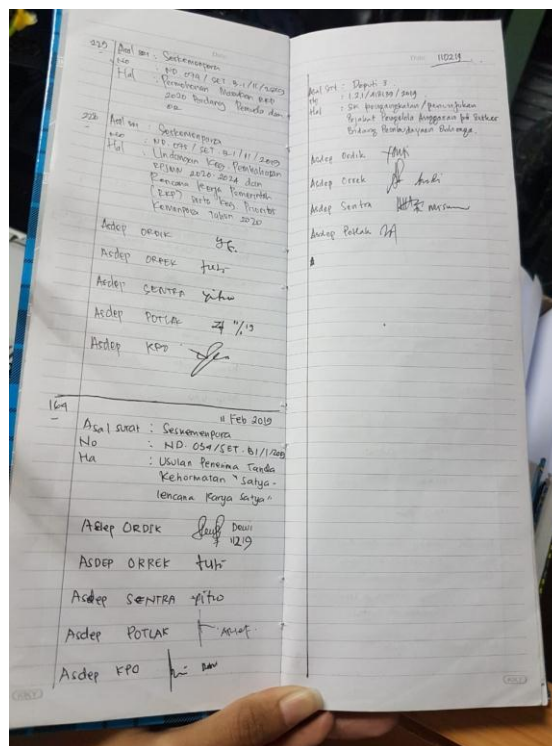 229 Asal srt : Seskemenpora
No : ND 079 / SET. B-1/II/2019
Hal : Permohonan Masukan RKP
2020 Bidang Pemuda dan
OR
228 Asal srt : Seskemenpora
No : ND. 078 / SET B-1/II/2019
Hal : Undangan Keg. Pembahasan
RPJMN 2020-2024 dan
Rencana Kerja Pemerintah
(RKP) serta Keg. Prioritas
Kemenpora Tahun 2020
Asdep ORDIK
Asdep ORREK tuti
Asdep SENTRA yitno
Asdep POTLAK 11/2 19
Asdep KPO
169
11 Feb 2019
Asal surat : Sesmenenpora
No : ND. 054/SET.B1/1/2019
Ha : Usulan Penerima Tanda
Kehormatan "Satya-
lencana Karya Satya"
Asdep ORDIK Dewi
11219
ASDEP ORREK tuti
Asdep SENTRA yitno
Asdep POTLAK
Asdep KPO
Date: 110219
Asal Srt : Deputi 3
No
Hal : SK pengangkatan / penunjukan
Pejabat Pengelola Anggaran pd Satker
Bidang Pembudayaan Olahraga.
Asdep Ordik
Asdep Orrek
Asdep Sentra
Asdep Potlak